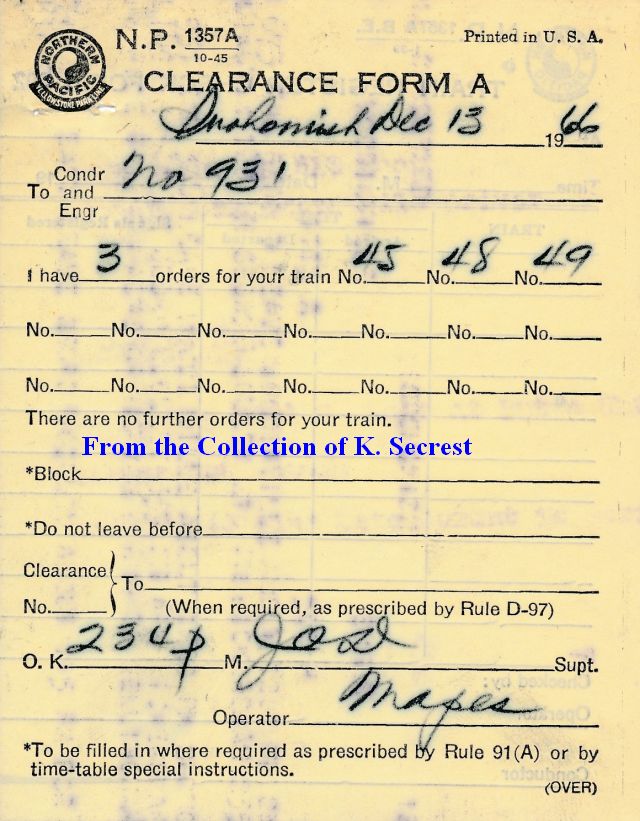 NORTHERN PACIFIC
YELLOWSTONE PARK LINE
N.P. 1357A
10-45
Printed in U. S. A.
CLEARANCE FORM A
Snohomish Dec 13 1966
To Condr and Engr No 931
I have 3 orders for your train No. 45 No. 48 No. 49
No. No. No. No. No. No. No.
No. No. No. No. No. No. No.
There are no further orders for your train.
From the Collection of K. Secrest
*Block
*Do not leave before
Clearance No. } To
(When required, as prescribed by Rule D-97)
O. K. 234 p M. Supt.
Operator Mapes
*To be filled in where required as prescribed by Rule 91(A) or by
time-table special instructions.
(OVER)